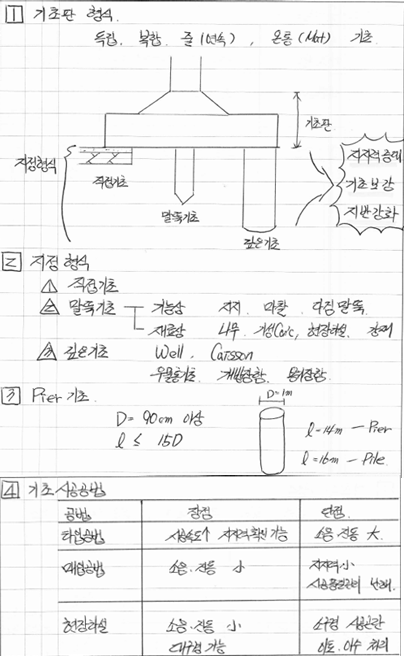 1 기초판 형식.
독립, 복합, 줄(연속), 온통(Mat) 기초
기초판
지정형식
직접기초
말뚝기초
깊은기초
지지력증대
기초보강
지반강화
2 지정형식
1 직접기초
2 말뚝기초 기능상 지지, 마찰, 다짐말뚝.
재료상 나무, 기성Conc, 현장타설, 강재
3 깊은기초 Well, Caisson
우물통기초, 개방잠함, 용기잠함.
3 Pier 기초.
D = 90cm 이상
l ≤ 15D
D=1m
l=14m — Pier
l=16m — Pile
4 기초시공공법
공법 장점 단점
타입공법 시공속도↑ 지지력확인 가능 소음. 진동 大.
매입공법 소음. 진동 小 지지력 小
시공품질관리
현장타설 소음. 진동 小 소구경 시공곤란
대구경 가능 이토. 이수 처리